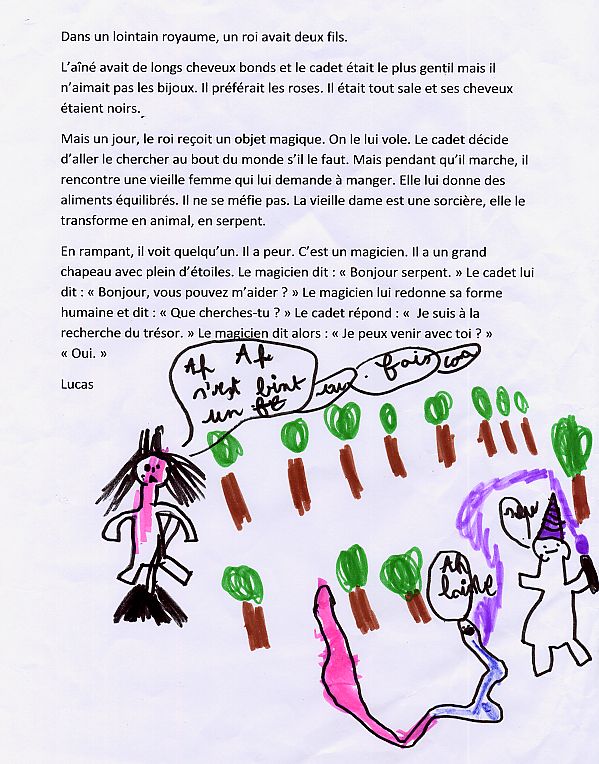 Dans un lointain royaume, un roi avait deux fils.
L'aîné avait de longs cheveux bonds et le cadet était le plus gentil mais il
n'aimait pas les bijoux. Il préférait les roses. Il était tout sale et ses cheveux
étaient noirs.
Mais un jour, le roi reçoit un objet magique. On le lui vole. Le cadet décide
d'aller le chercher au bout du monde s'il le faut. Mais pendant qu'il marche, il
rencontre une vieille femme qui lui demande à manger. Elle lui donne des
aliments équilibrés. Il ne se méfie pas. La vieille dame est une sorcière, elle le
transforme en animal, en serpent.
En rampant, il voit quelqu'un. Il a peur. C'est un magicien. Il a un grand
chapeau avec plein d'étoiles. Le magicien dit : « Bonjour serpent. » Le cadet lui
dit : « Bonjour, vous pouvez m'aider ? » Le magicien lui redonne sa forme
humaine et dit : « Que cherches-tu ? » Le cadet répond : «  Je suis à la
recherche du trésor. » Le magicien dit alors : « Je peux venir avec toi ? »
« Oui. »
Lucas
un
fois